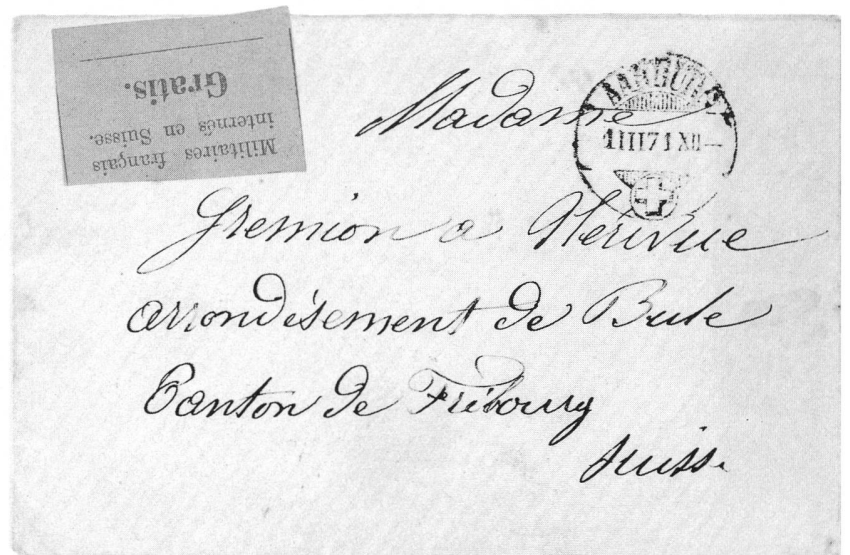 Militaires français
internés en Suisse.
Gratis.
AARBURG
1 III 71 XII
Madame
Gremion a Nérivue
arrondisement de Bule
Canton de Fribourg
Suisse